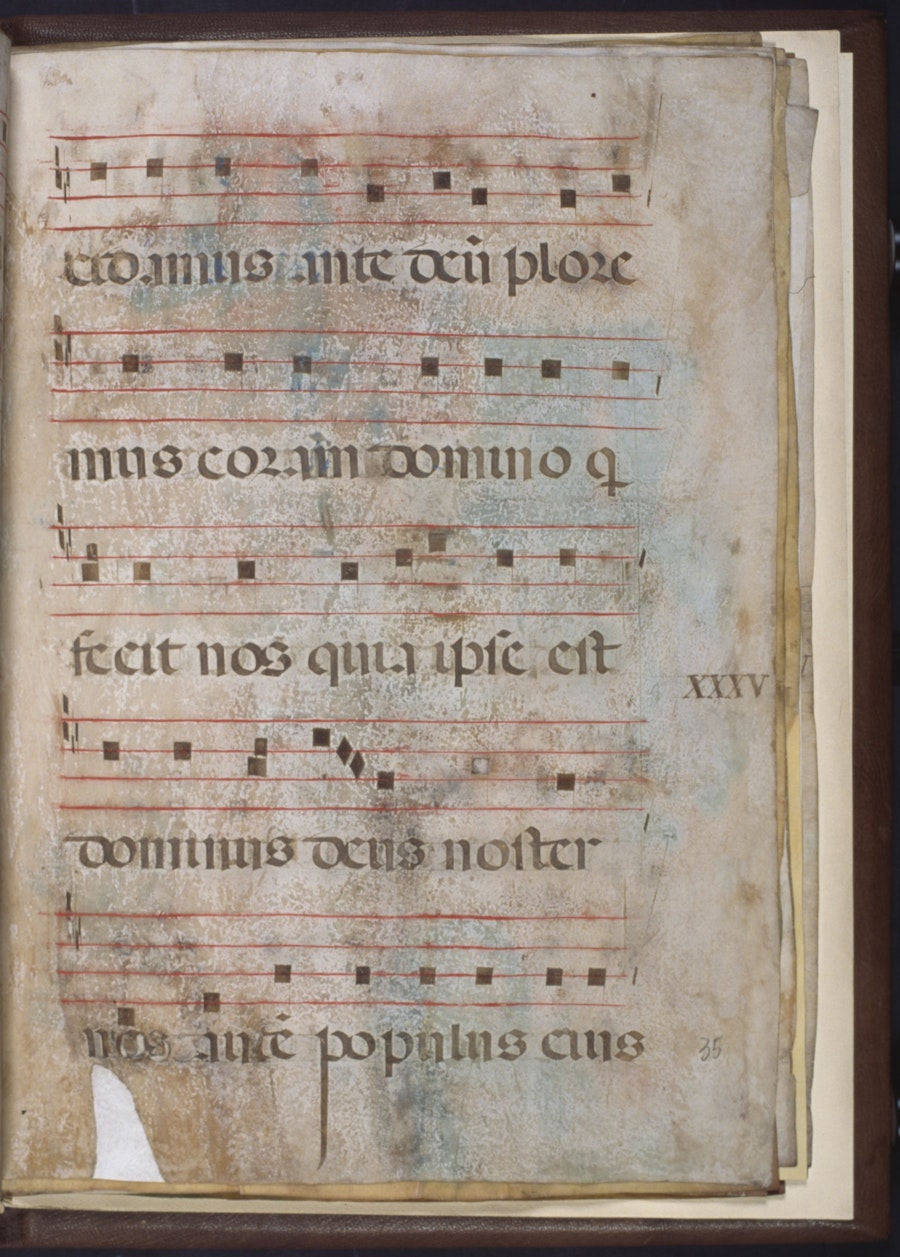 cidamus ante deū plore
mus coram domino q
fecit nos quia ipse est
XXXV
dominus deus noster
nos antē populus eius
35